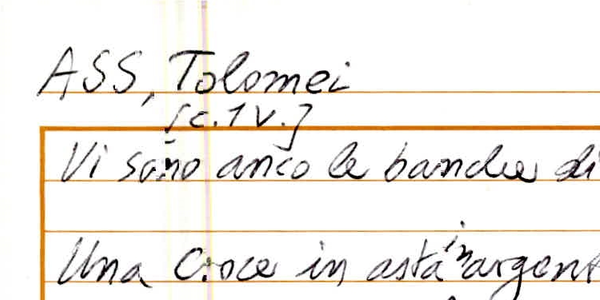 ASS, Tolomei
[c. 1 v.]
Vi sono anco le banche di
Una Croce in asta in argent